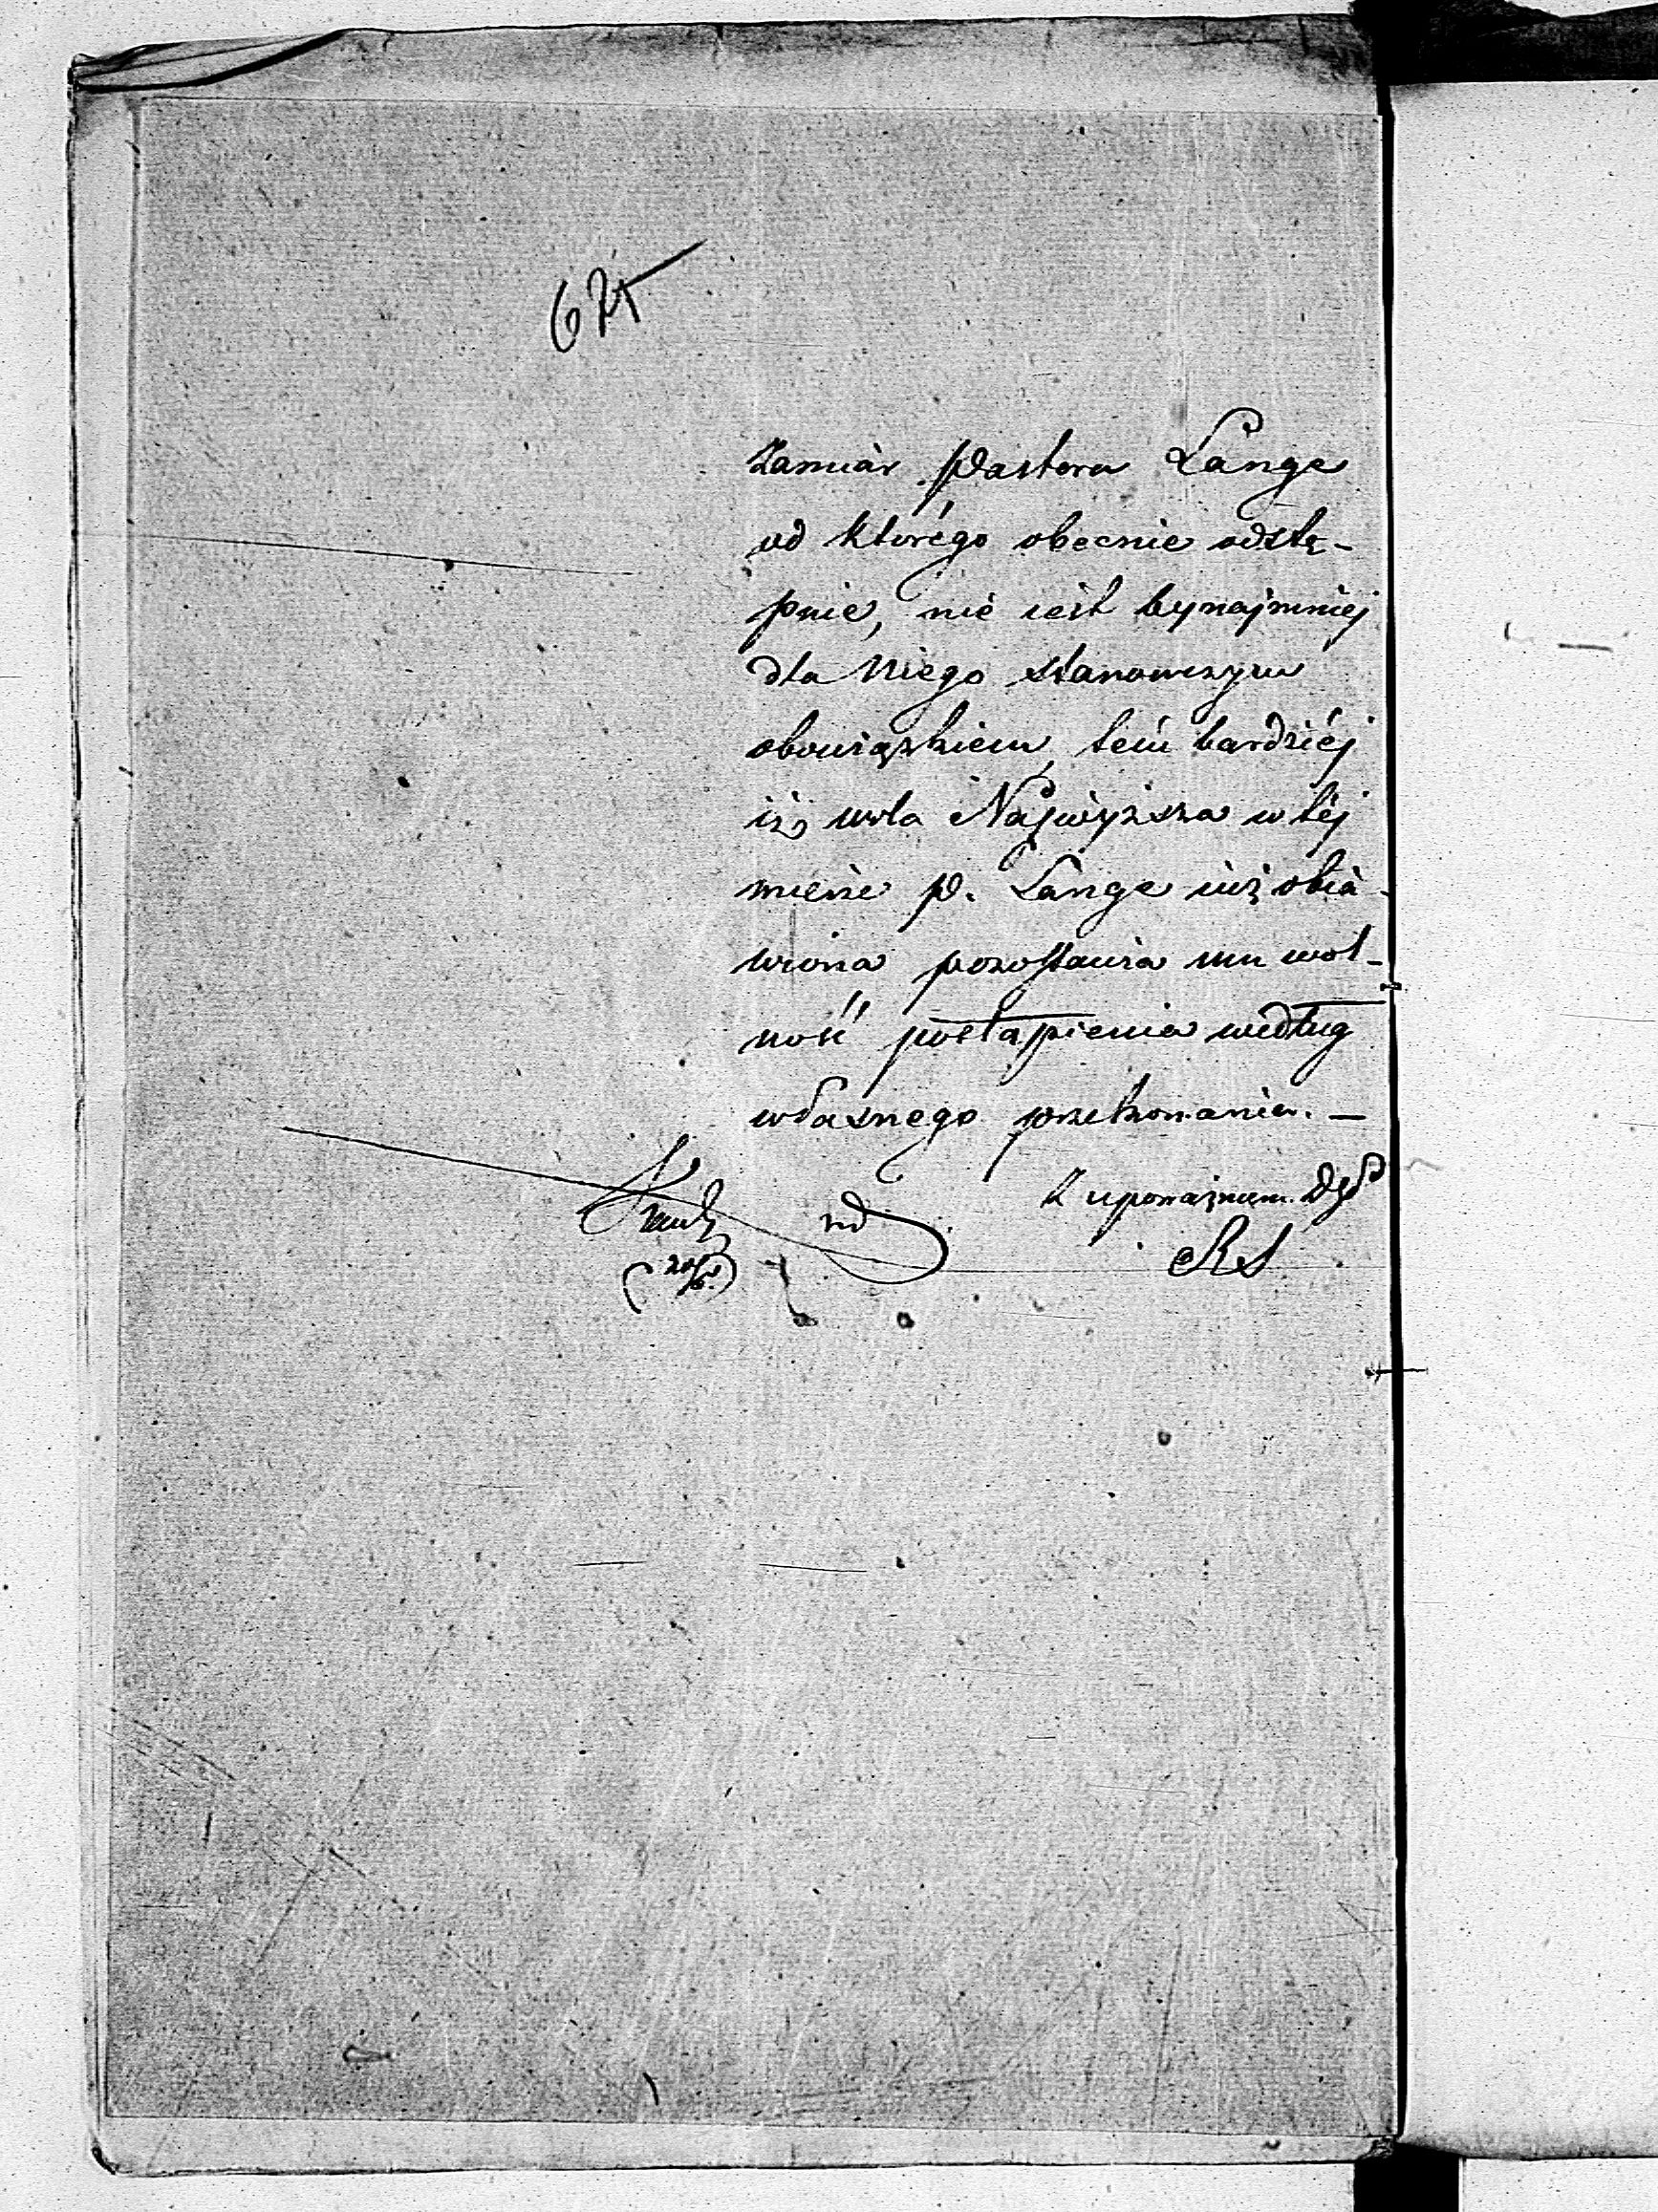 625
Zamiar Pastora Lange
od którego obecnie odstę-
puie, nie iest bynajmniej
dla Niego stanowczym
obowiązkiem, tém bardziéj
iż wola Najwyższa w téj
mierze p. Lange iuż obia-
wiona pozostawia mu wol-
ność postąpienia według
własnego przekonania. —
Z upoważnien. DgP
RS
nd
(20/6.)